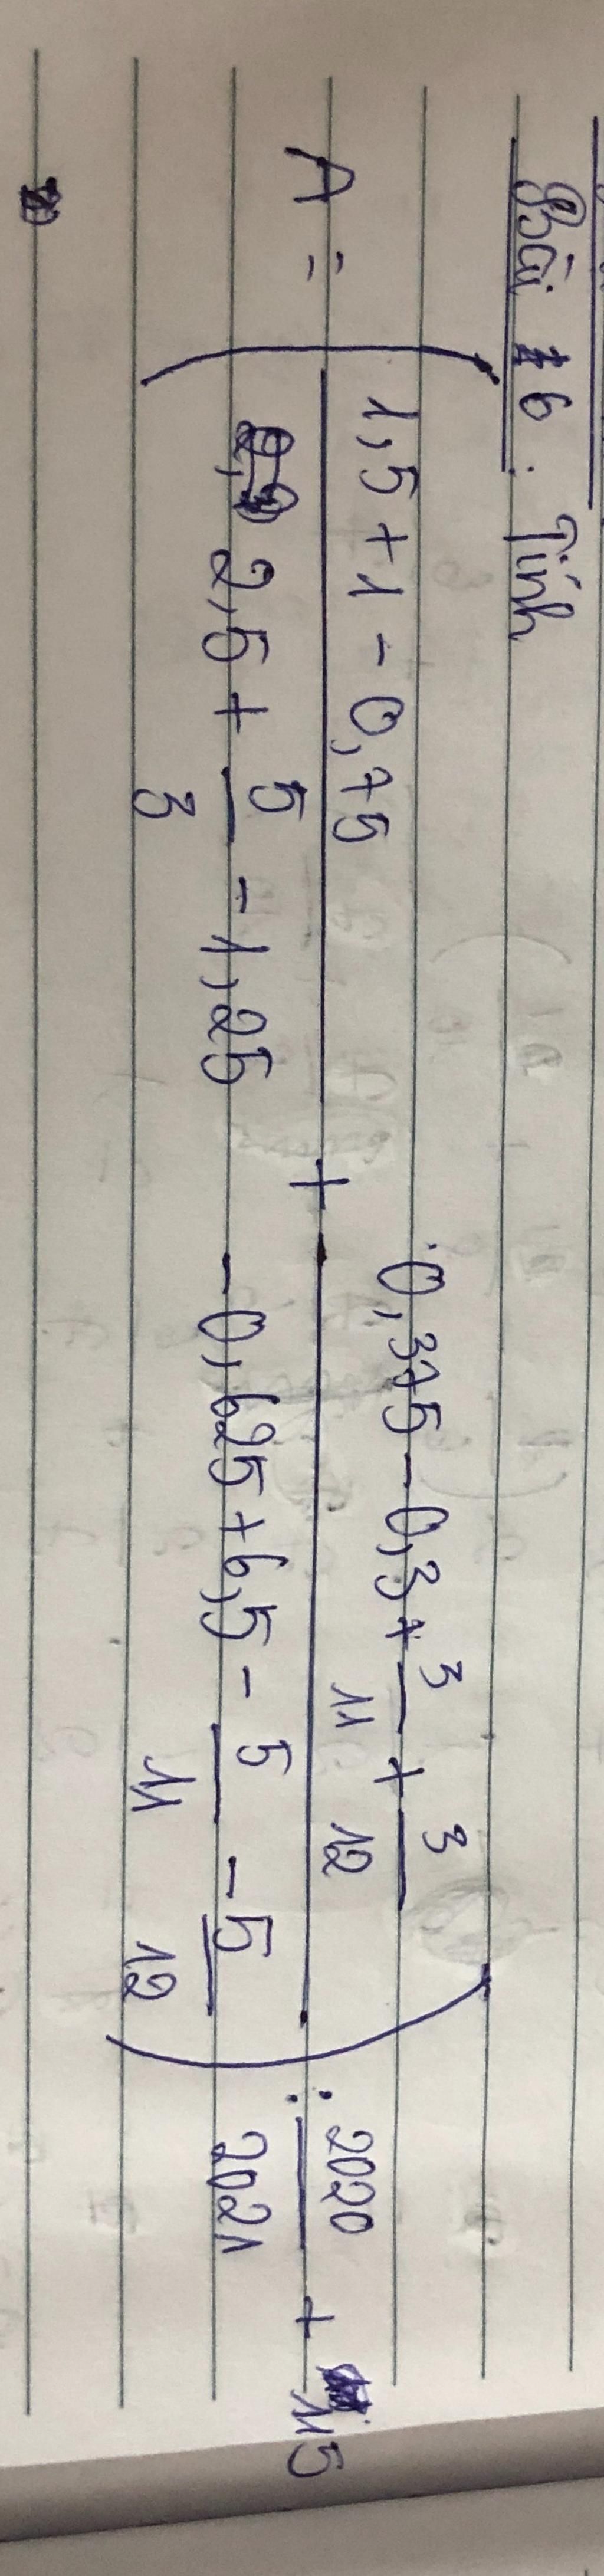 Bài 6 : Tính
A = ( (1,5 + 1 - 0,75) / (2,5 + 5/3 - 1,25) + (0,375 - 0,3 + 3/11 + 3/12) / (-0,625 + 6,5 - 5/11 - 5/12) ) : 2020/2021 + 115